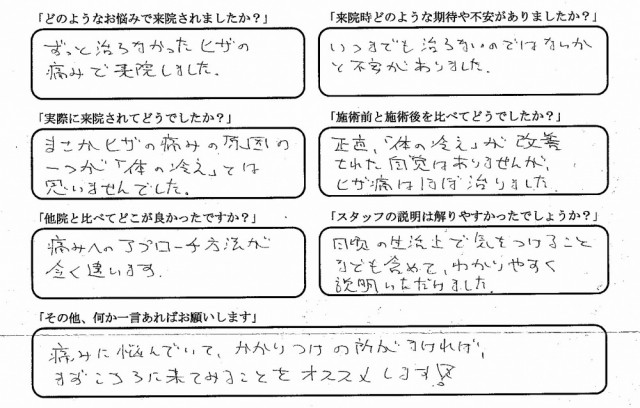 「どのようなお悩みで来院されましたか？」
ずっと治らなかったヒザの
痛みで来院しました。
「来院時どのような期待や不安がありましたか？」
いつまでも治らないのではないか
と不安がありました。
「実際に来院されてどうでしたか？」
まさかヒザの痛みの原因の
一つが「体の冷え」とは
思いませんでした。
「施術前と施術後を比べてどうでしたか？」
正直、「体の冷え」が改善
された自覚はありませんが、
ヒザ痛はほぼ治りました。
「他院と比べてどこが良かったですか？」
痛みへのアプローチ方法が
全く違います。
「スタッフの説明は解りやすかったでしょうか？」
日頃の生活上で気をつけること
なども含めて、わかりやすく
説明いただけました。
「その他、何か一言あればお願いします」
痛みに悩んでいて、かかりつけの所がなければ、
まずこちらに来てみることをオススメします!